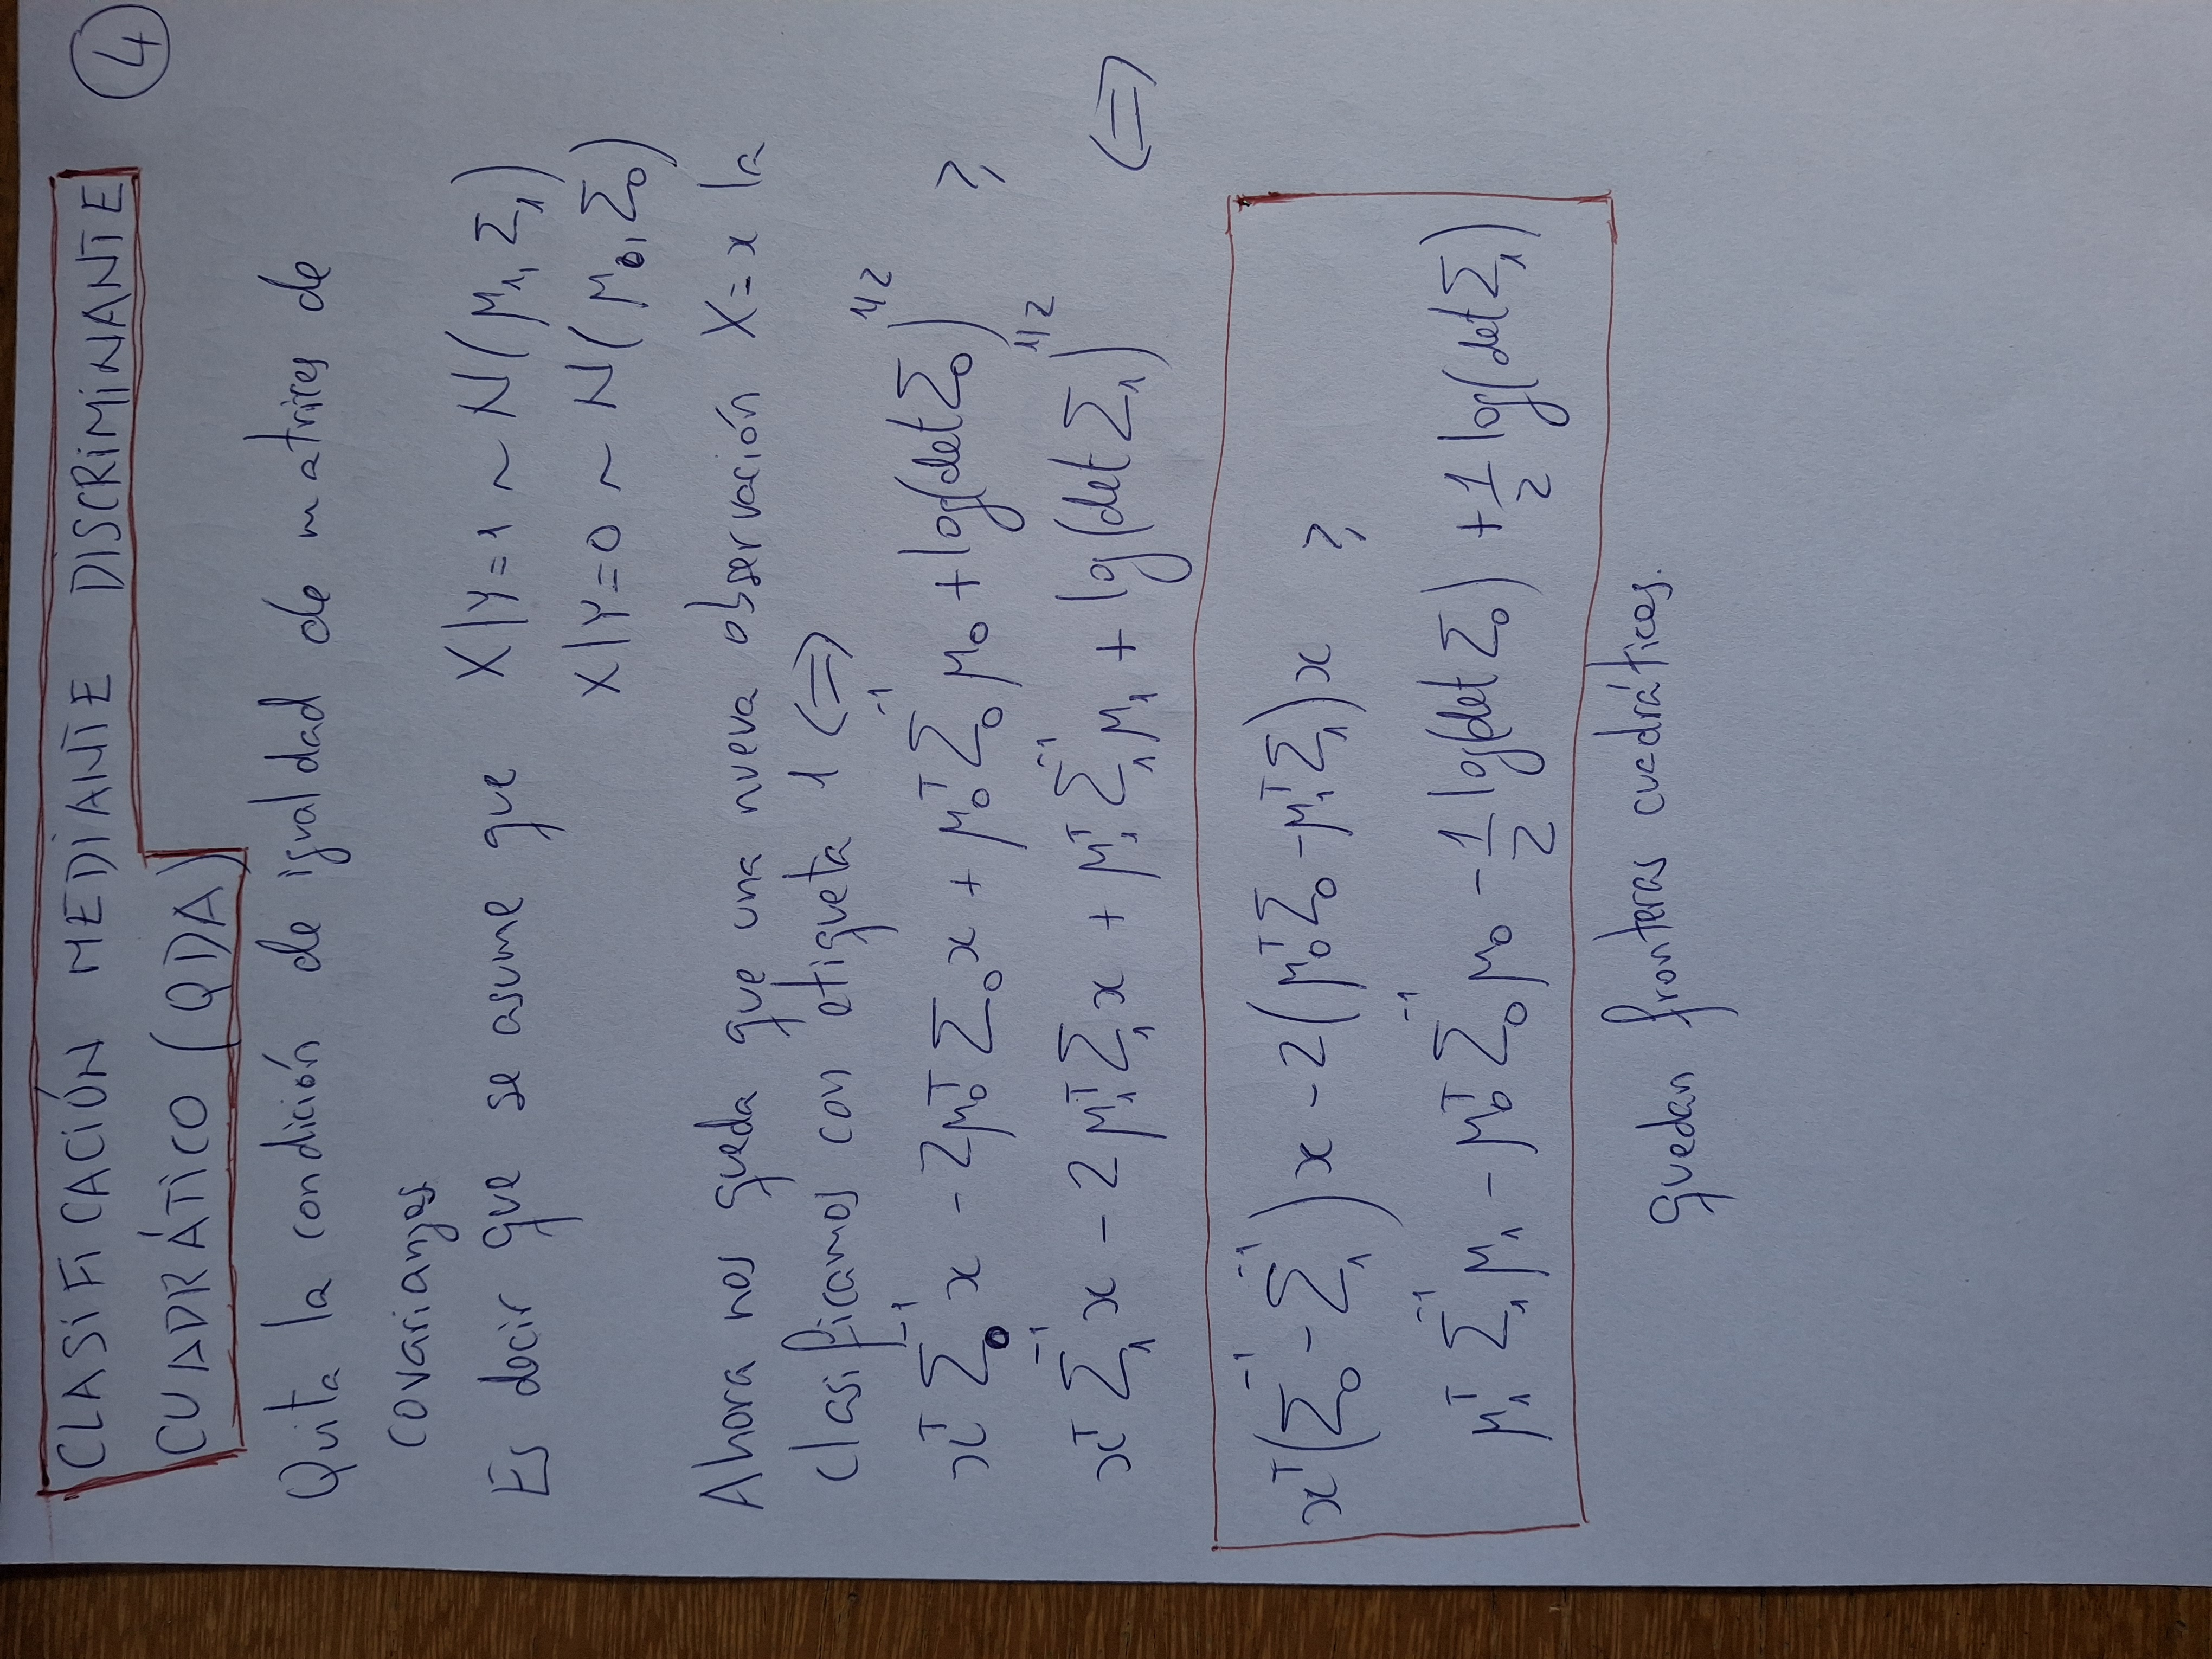 CLASIFICACIÓN MEDIANTE DISCRIMINANTE
④
CUADRÁTICO (QDA)
Quita la condición de igualdad de matrices de
covarianzas
Es decir que se asume que X|Y=1 ~ N(μ₁, Σ₁)
X|Y=0 ~ N(μ₀, Σ₀)
Ahora nos queda que una nueva observación X=x la
clasificamos con etiqueta 1 ⟺
xᵀ Σ₀⁻¹ x - 2μ₀ᵀ Σ₀ x + μ₀ᵀ Σ₀⁻¹ μ₀ + log(det Σ₀)^1/2 ≥
xᵀ Σ₁⁻¹ x - 2μ₁ᵀ Σ₁ x + μ₁ᵀ Σ₁⁻¹ μ₁ + log(det Σ₁)^1/2 ⟺
xᵀ(Σ₀⁻¹ - Σ₁⁻¹)x - 2(μ₀ᵀ Σ₀ - μ₁ᵀ Σ₁)x ≥
μ₁ᵀ Σ₁⁻¹ μ₁ - μ₀ᵀ Σ₀⁻¹ μ₀ - 1/2 log(det Σ₀) + 1/2 log(det Σ₁)
quedan fronteras cuadráticas.